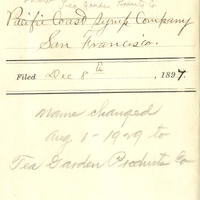 Tea Garden Products Co
Pacific Coast Syrup Company
San Francisco.
Filed Dec 8th, 1897.
Name changed
Aug 1-1929 to
Tea Garden Products Co